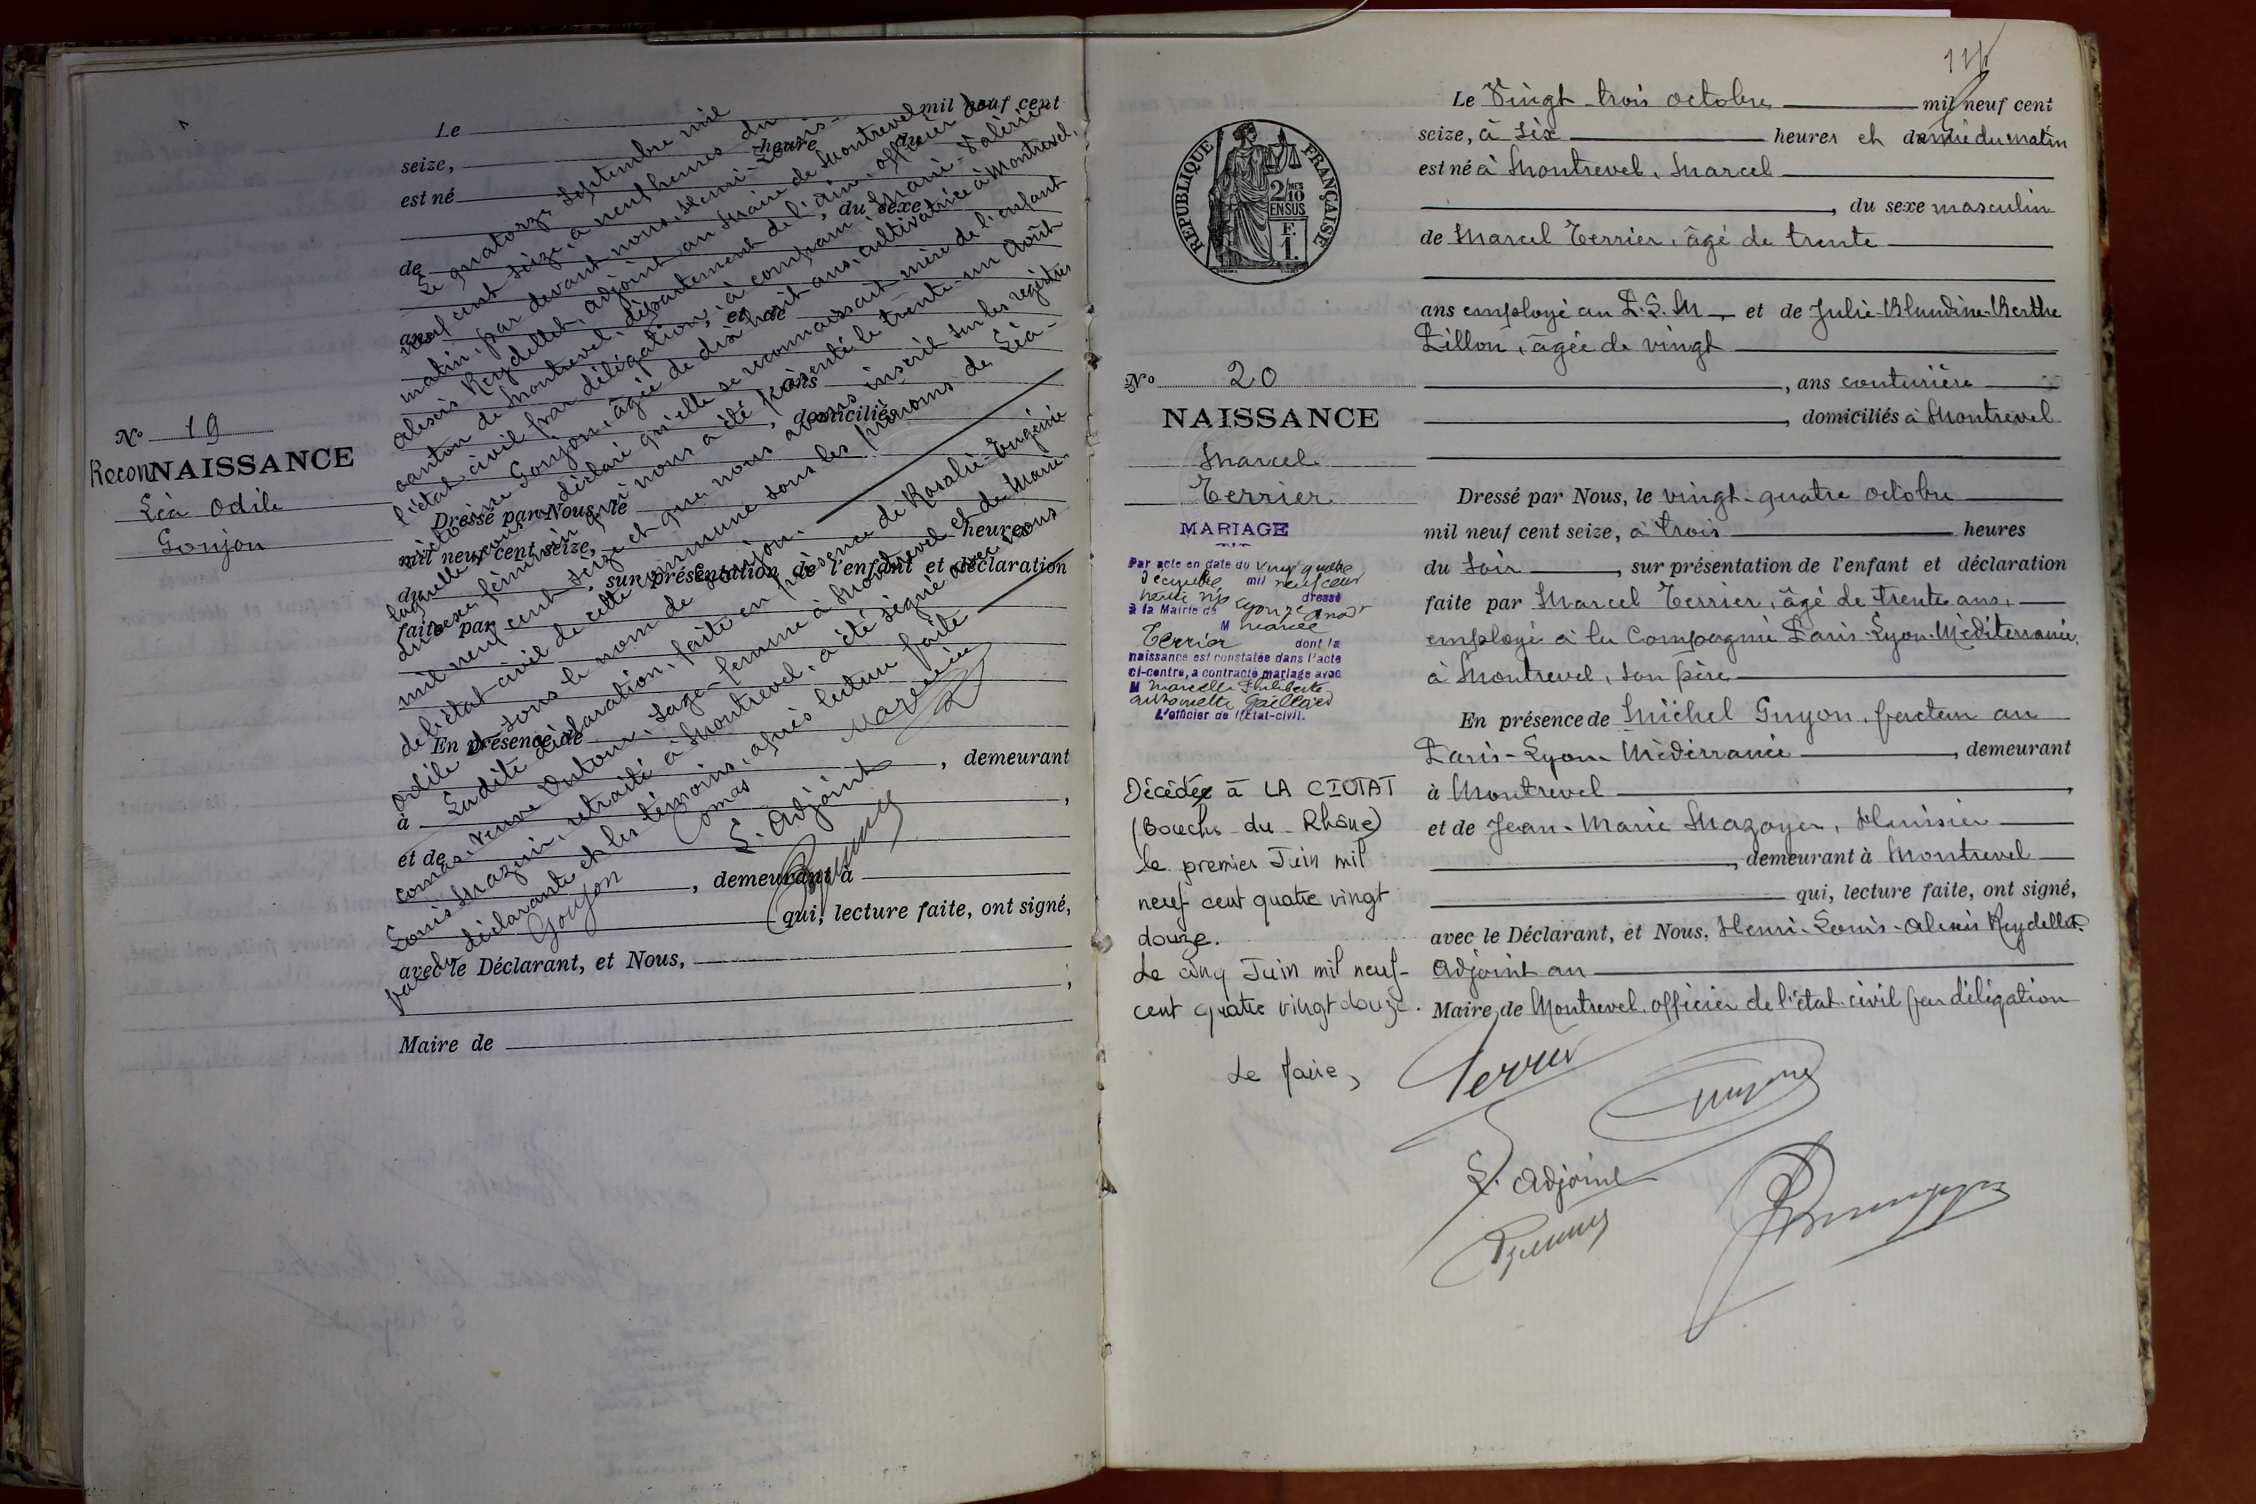 Le mil neuf cent
seize, heure du
est né
, du sexe
de
ans et de
ans
, domiciliés
Dressé par Nous, le
mil neuf cent seize, heures
du sur présentation de l'enfant et déclaration
faite par
En présence de
, demeurant
à ,
et de
, demeurant à
qui, lecture faite, ont signé,
avec le Déclarant, et Nous,
;
Maire de
Le quatorze Septembre mil
neuf cent seize, à neuf heures du
matin, par devant nous, Henri-Louis-
Alexis Reydellet, adjoint au Maire de Montrevel,
canton de Montrevel, département de l'Ain, officier de
l'état-civil par délégation, a comparu Marie-Valérie-
Victorine Goujon, âgée de dix huit ans, cultivatrice à Montrevel,
laquelle nous a déclaré qu'elle se reconnaissait mère de l'enfant
du sexe féminin qui nous a été présenté le trente-un Août
mil neuf cent seize et que nous avons inscrit sur les registres
de l'état civil de cette commune sous les prénoms de Léa-
Odile et sous le nom de Goujon.
La dite déclaration, faite en présence de Rosalie-Eugénie
Comas, veuve Antoine, sage-femme à Montrevel et de Marie-
Louis Mazuir, retraité à Montrevel, a été signée avec nous
par la déclarante et les témoins, après lecture faite
Goujon Comas Mazuir
L'Adjoint
No 19
Recon NAISSANCE
Léa Odile
Goujon
114
REPUBLIQUE FRANÇAISE
2/10 MES
EN SUS
F.
1.
No 20
NAISSANCE
Marcel
Terrier
MARIAGE
Par acte en date du vingt quatre
décembre mil neuf cent
dressé
à la Mairie de Cyonze
M Marcel
Terrier dont la
naissance est constatée dans l'acte
ci-contre, a contracté mariage avec
M Marcelle Philiberte
Antoinette Gaillard
L'officier de l'État-civil.
Décédé à LA CIOTAT
(Bouchs du Rhône)
le premier Juin mil
neuf cent quatre vingt
douze.
Le cinq Juin mil neuf
cent quatre vingt douze.
Le Maire,
Le Vingt trois octobre mil neuf cent
seize, à six heures et demie du matin
est né à Montrevel, Marcel
, du sexe masculin
de Marcel Terrier, âgé de trente
ans employé au P.L.M , et de Julie-Blandine-Berthe
Pillon, âgée de vingt
, ans couturière
, domiciliés à Montrevel
Dressé par Nous, le vingt-quatre octobre
mil neuf cent seize, à trois heures
du soir , sur présentation de l'enfant et déclaration
faite par Marcel Terrier, âgé de trente ans,
employé à la Compagnie Paris-Lyon-Méditerranée,
à Montrevel, son père
En présence de Michel Guyon, facteur au
Paris-Lyon-Méditerranée , demeurant
à Montrevel ,
et de Jean-Marie Mazoyer,
, demeurant à Montrevel
qui, lecture faite, ont signé,
avec le Déclarant, et Nous, Henri-Louis-Alexis Reydellet
Adjoint au
Maire de Montrevel, officier de l'état-civil par délégation
Terrier
Guyon
L'Adjoint